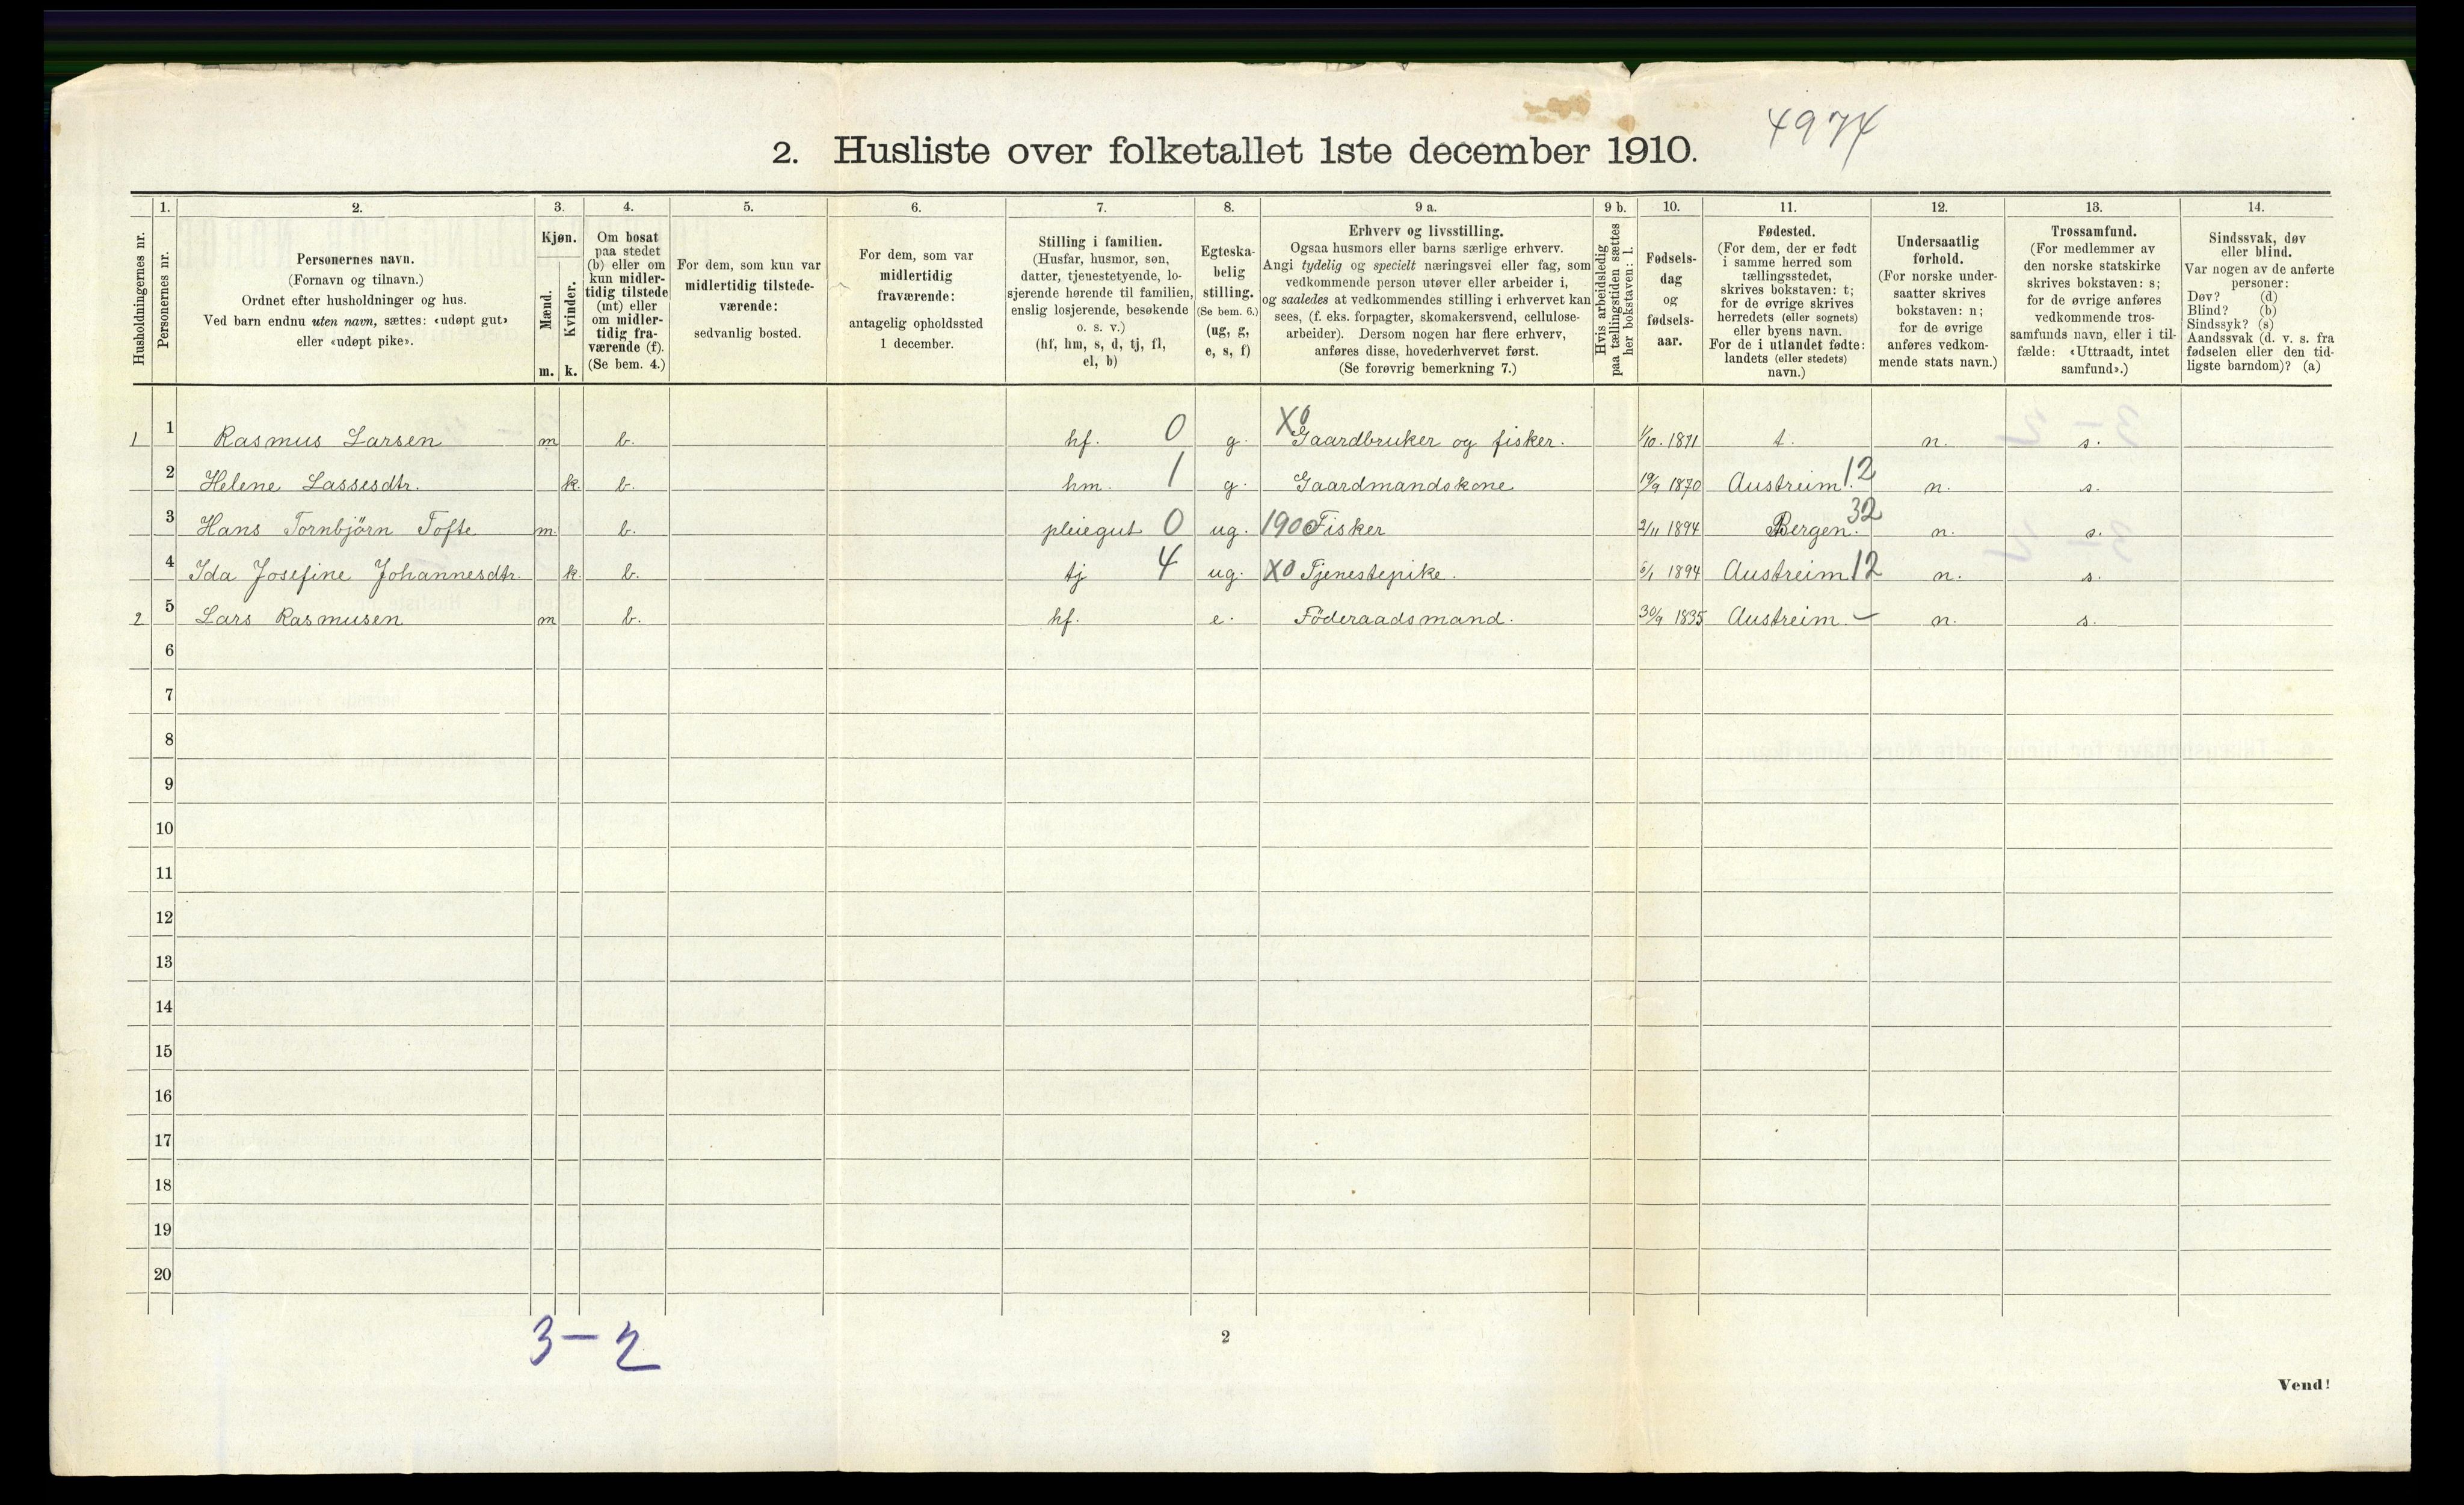 4974
2. Husliste over folketallet 1ste december 1910.
Husholdningernes nr.
1.
Personernes nr.
2.
Personernes navn.
(Fornavn og tilnavn.)
Ordnet efter husholdninger og hus.
Ved barn endnu uten navn, sættes: «udøpt gut»
eller «udøpt pike».
3.
Kjøn.
Mænd.
Kvinder.
m. k.
4.
Om bosat
paa stedet
(b) eller om
kun midler-
tidig tilstede
(mt) eller
om midler-
tidig fra-
værende (f).
(Se bem. 4.)
5.
For dem, som kun var
midlertidig tilstede-
værende:
sedvanlig bosted.
6.
For dem, som var
midlertidig
fraværende:
antagelig opholdssted
1 december.
7.
Stilling i familien.
(Husfar, husmor, søn,
datter, tjenestetyende, lo-
sjerende hørende til familien,
enslig losjerende, besøkende
o. s. v.)
(hf, hm, s, d, tj, fl,
el, b)
8.
Egteska-
belig
stilling.
(Se bem. 6.)
(ug, g,
e, s, f)
9 a.
Erhverv og livsstilling.
Ogsaa husmors eller barns særlige erhverv.
Angi tydelig og specielt næringsvei eller fag, som
vedkommende person utøver eller arbeider i,
og saaledes at vedkommendes stilling i erhvervet kan
sees, (f. eks. forpagter, skomakersvend, cellulose-
arbeider). Dersom nogen har flere erhverv,
anføres disse, hovederhvervet først.
(Se forøvrig bemerkning 7.)
9 b.
Hvis arbeidsledig
paa tællingstiden sættes
her bokstaven: l.
10.
Fødsels-
dag
og
fødsels-
aar.
11.
Fødested.
(For dem, der er født
i samme herred som
tællingsstedet,
skrives bokstaven: t;
for de øvrige skrives
herredets (eller sognets)
eller byens navn.
For de i utlandet fødte:
landets (eller stedets)
navn.)
12.
Undersaatlig
forhold.
(For norske under-
saatter skrives
bokstaven: n;
for de øvrige
anføres vedkom-
mende stats navn.)
13.
Trossamfund.
(For medlemmer av
den norske statskirke
skrives bokstaven: s;
for de øvrige anføres
vedkommende tros-
samfunds navn, eller i til-
fælde: «Uttraadt, intet
samfund».)
14.
Sindssvak, døv
eller blind.
Var nogen av de anførte
personer:
Døv? (d)
Blind? (b)
Sindssyk? (s)
Aandssvak (d. v. s. fra
fødselen eller den tid-
ligste barndom)? (a)
1 1 Rasmus Larsen m b. hf. 0 g. X0 Gaardbruker og fisker. 1/10. 1871 t. n. s.
2 Helene Lassesdtr. k. b. hm. 1 g. Gaardmandskone 19/9 1870 Austreim. 12 n. s.
3 Hans Tornbjörn Tofte m. b. pleiegut 0 ug. 190 Fisker 2/11 1894 Bergen. 32 n. s.
4 Ida Josefine Johannesdtr. k. b. tj 4 ug. X0 Tjenestepike. 5/1 1894 Austreim. 12 n. s.
2 5 Lars Rasmusen m b. hf. e. Föderaadsmand. 30/9 1835 Austreim. – n. s.
6
7
8
9
10
11
12
13
14
15
16
17
18
19
20
3 – 2
2
Vend!